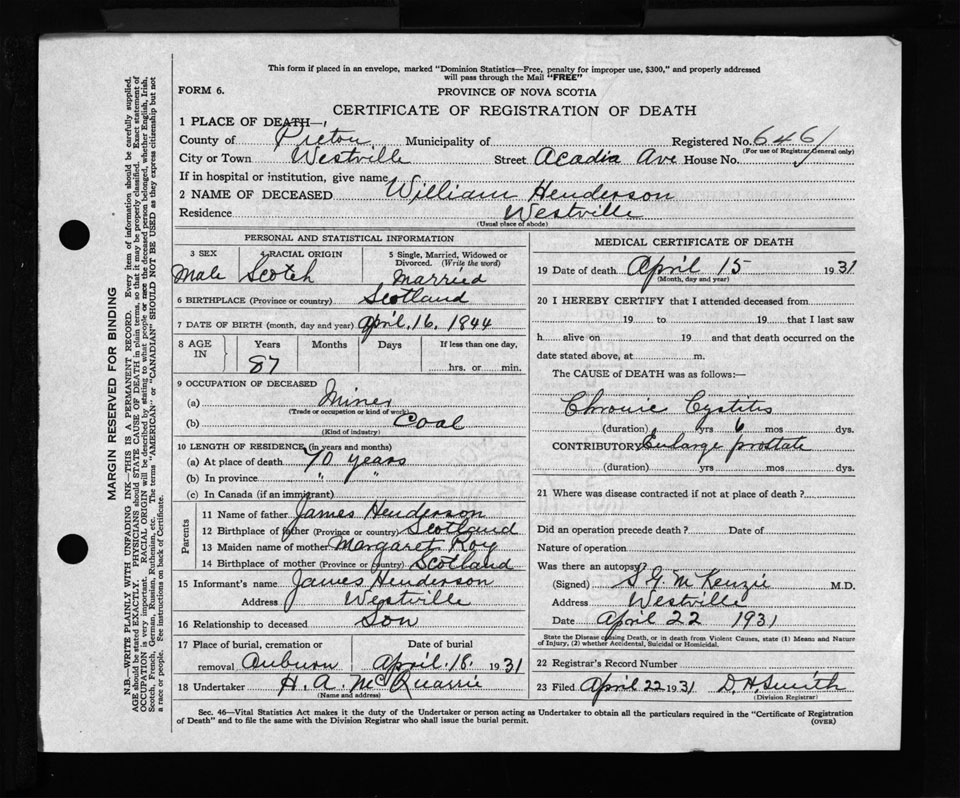 This form if placed in an envelope, marked "Dominion Statistics—Free, penalty for improper use, $300," and properly addressed
will pass through the Mail "FREE"
FORM 6. PROVINCE OF NOVA SCOTIA
CERTIFICATE OF REGISTRATION OF DEATH
1 PLACE OF DEATH—
County of Pictou Municipality of Registered No. 6461
(For use of Registrar General only)
City or Town Westville Street Acadia Ave House No.
If in hospital or institution, give name
2 NAME OF DECEASED William Henderson
Residence Westville
(Usual place of abode)
PERSONAL AND STATISTICAL INFORMATION
3 SEX 4 RACIAL ORIGIN 5 Single, Married, Widowed or
Divorced. (Write the word)
Male Scotch Married
6 BIRTHPLACE (Province or country) Scotland
7 DATE OF BIRTH (month, day and year) April, 16, 1844
8 AGE IN Years Months Days If less than one day,
87 hrs. or min.
9 OCCUPATION OF DECEASED
(a) Miner
(Trade or occupation or kind of work)
(b) Coal
(Kind of industry)
10 LENGTH OF RESIDENCE (in years and months)
(a) At place of death 70 years
(b) In province " "
(c) In Canada (if an immigrant)
Parents
11 Name of father James Henderson
12 Birthplace of father (Province or country) Scotland
13 Maiden name of mother Margaret Roy
14 Birthplace of mother (Province or country) Scotland
15 Informant's name James Henderson
Address Westville
16 Relationship to deceased Son
17 Place of burial, cremation or Date of burial
removal Auburn April. 18. 1931
18 Undertaker H. A. McQuarrie
(Name and address)
MEDICAL CERTIFICATE OF DEATH
19 Date of death April 15 1931
(Month, day and year)
20 I HEREBY CERTIFY that I attended deceased from
19 to 19 that I last saw
h alive on 19 and that death occurred on the
date stated above, at m.
The CAUSE of DEATH was as follows:—
Chronic Cystitis
(duration) yrs 6 mos dys.
CONTRIBUTORY Enlarge prostate
(duration) yrs mos dys.
21 Where was disease contracted if not at place of death?
Did an operation precede death? Date of
Nature of operation
Was there an autopsy?
(Signed) S G McKenzie M.D.
Address Westville
Date April 22 1931
State the Disease causing Death, or in death from Violent Causes, state (1) Means and Nature
of Injury, (2) whether Accidental, Suicidal or Homicidal.
22 Registrar's Record Number
23 Filed April 22 1931 D. H. Smith
(Division Registrar)
Sec. 46—Vital Statistics Act makes it the duty of the Undertaker or person acting as Undertaker to obtain all the particulars required in the "Certificate of Registration
of Death" and to file the same with the Division Registrar who shall issue the burial permit. (OVER)
MARGIN RESERVED FOR BINDING
N.B.—WRITE PLAINLY WITH UNFADING INK—THIS IS A PERMANENT RECORD. Every item of information should be carefully supplied.
AGE should be stated EXACTLY. PHYSICIANS should STATE CAUSE OF DEATH in plain terms, so that it may be properly classified. Exact statement of
OCCUPATION is very important. RACIAL ORIGIN will be described by stating to what people or race the deceased person belonged, whether English, Irish,
Scotch, French, German, Russian, Ruthenian, etc. The terms "AMERICAN" or "CANADIAN" SHOULD NOT BE USED as they express citizenship but not
a race or people. See instructions on back of Certificate.